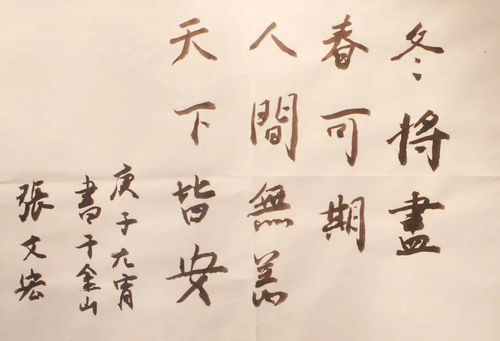 冬將盡
春可期
人間無恙
天下皆安
庚子元宵
書于金山
張文宏